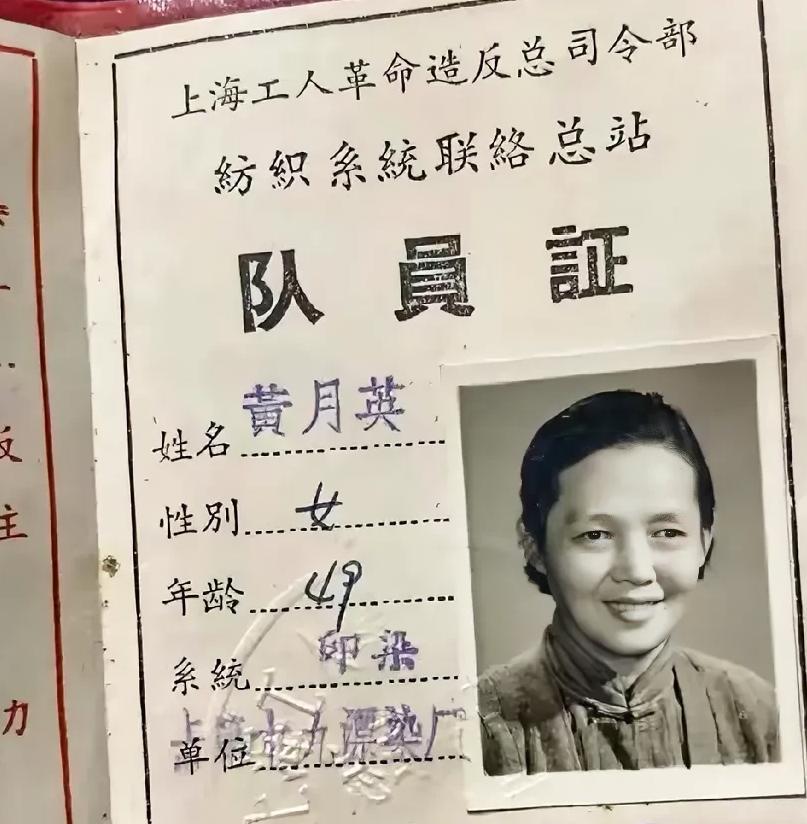 上海工人革命造反总司令部
紡織系統联絡总站
队員証
姓名 黃月英
性別 女
年龄 49
系統 印染
单位 上海中九漂染厂
反
主
力